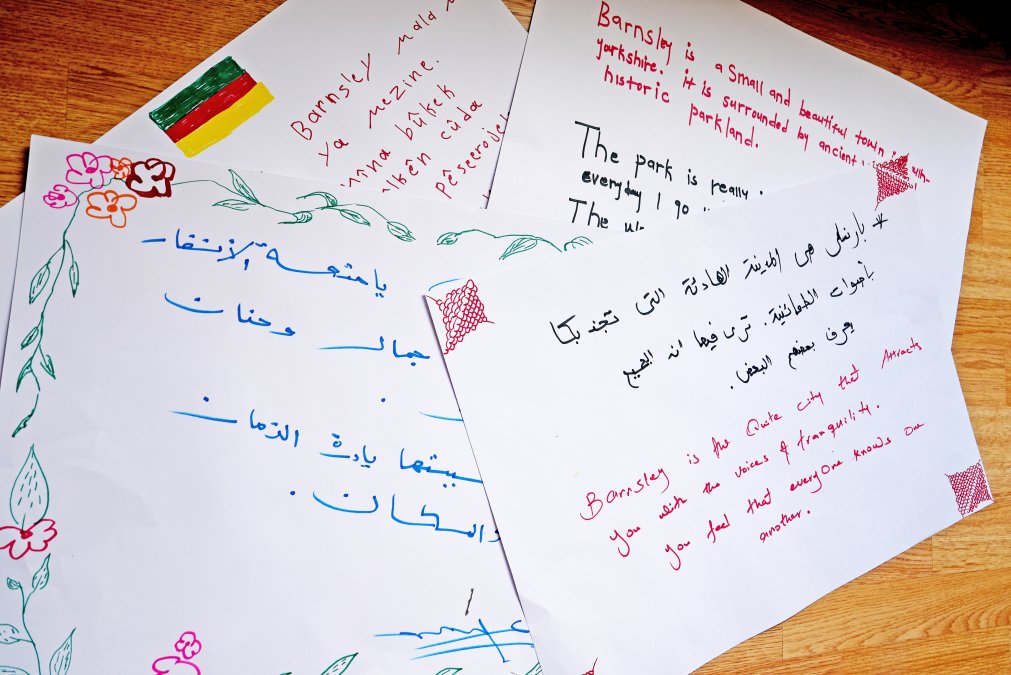 Barnsley mala
ya mezine.
bûkek
cûda
Pêseeroje
Barnsley is a Small and beautiful town
yorkshire. it is surrounded by ancient
historic parkland.
The park is really
everyday I go
The
ياحتحسة الأنتظار
جمال وحنان
يادرة الزمان
والسكان.
* بارنسلي هي المدينة الهادئة التي تجذبك
بأصوات الطمائنينة. ترى فيها انه الجميع
يعرف بعضهم البعض.
Barnsley is the Quite city that Attracts
you with the voices of tranquility.
you feel that everyone knows one
another.